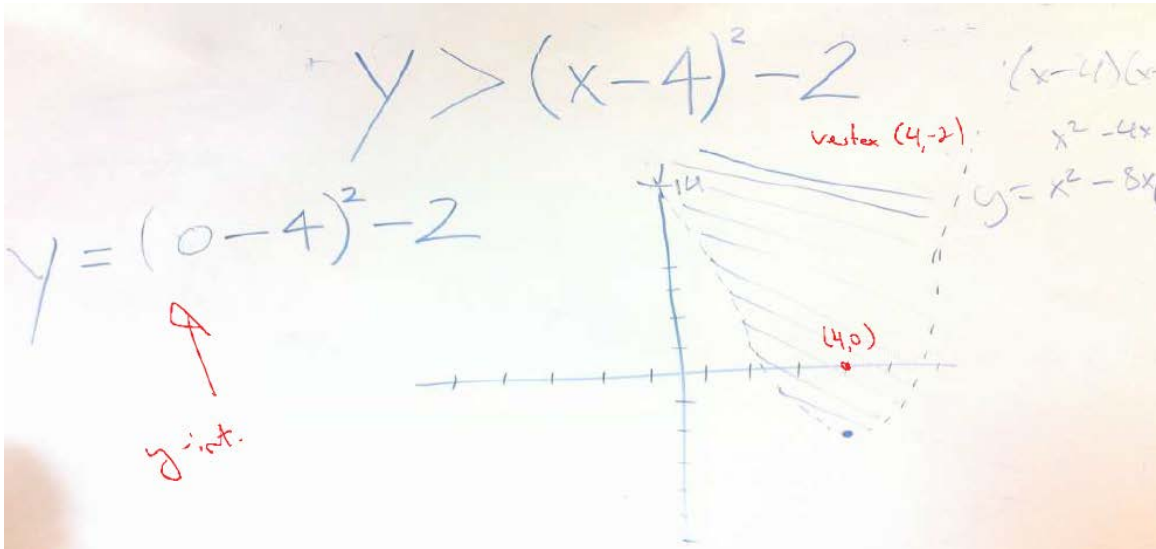 y > (x-4)² - 2
(x-4)(x-
vertex (4,-2)
x² - 4x
y = x² - 8x
14
y = (0-4)² - 2
(4,0)
y-int.